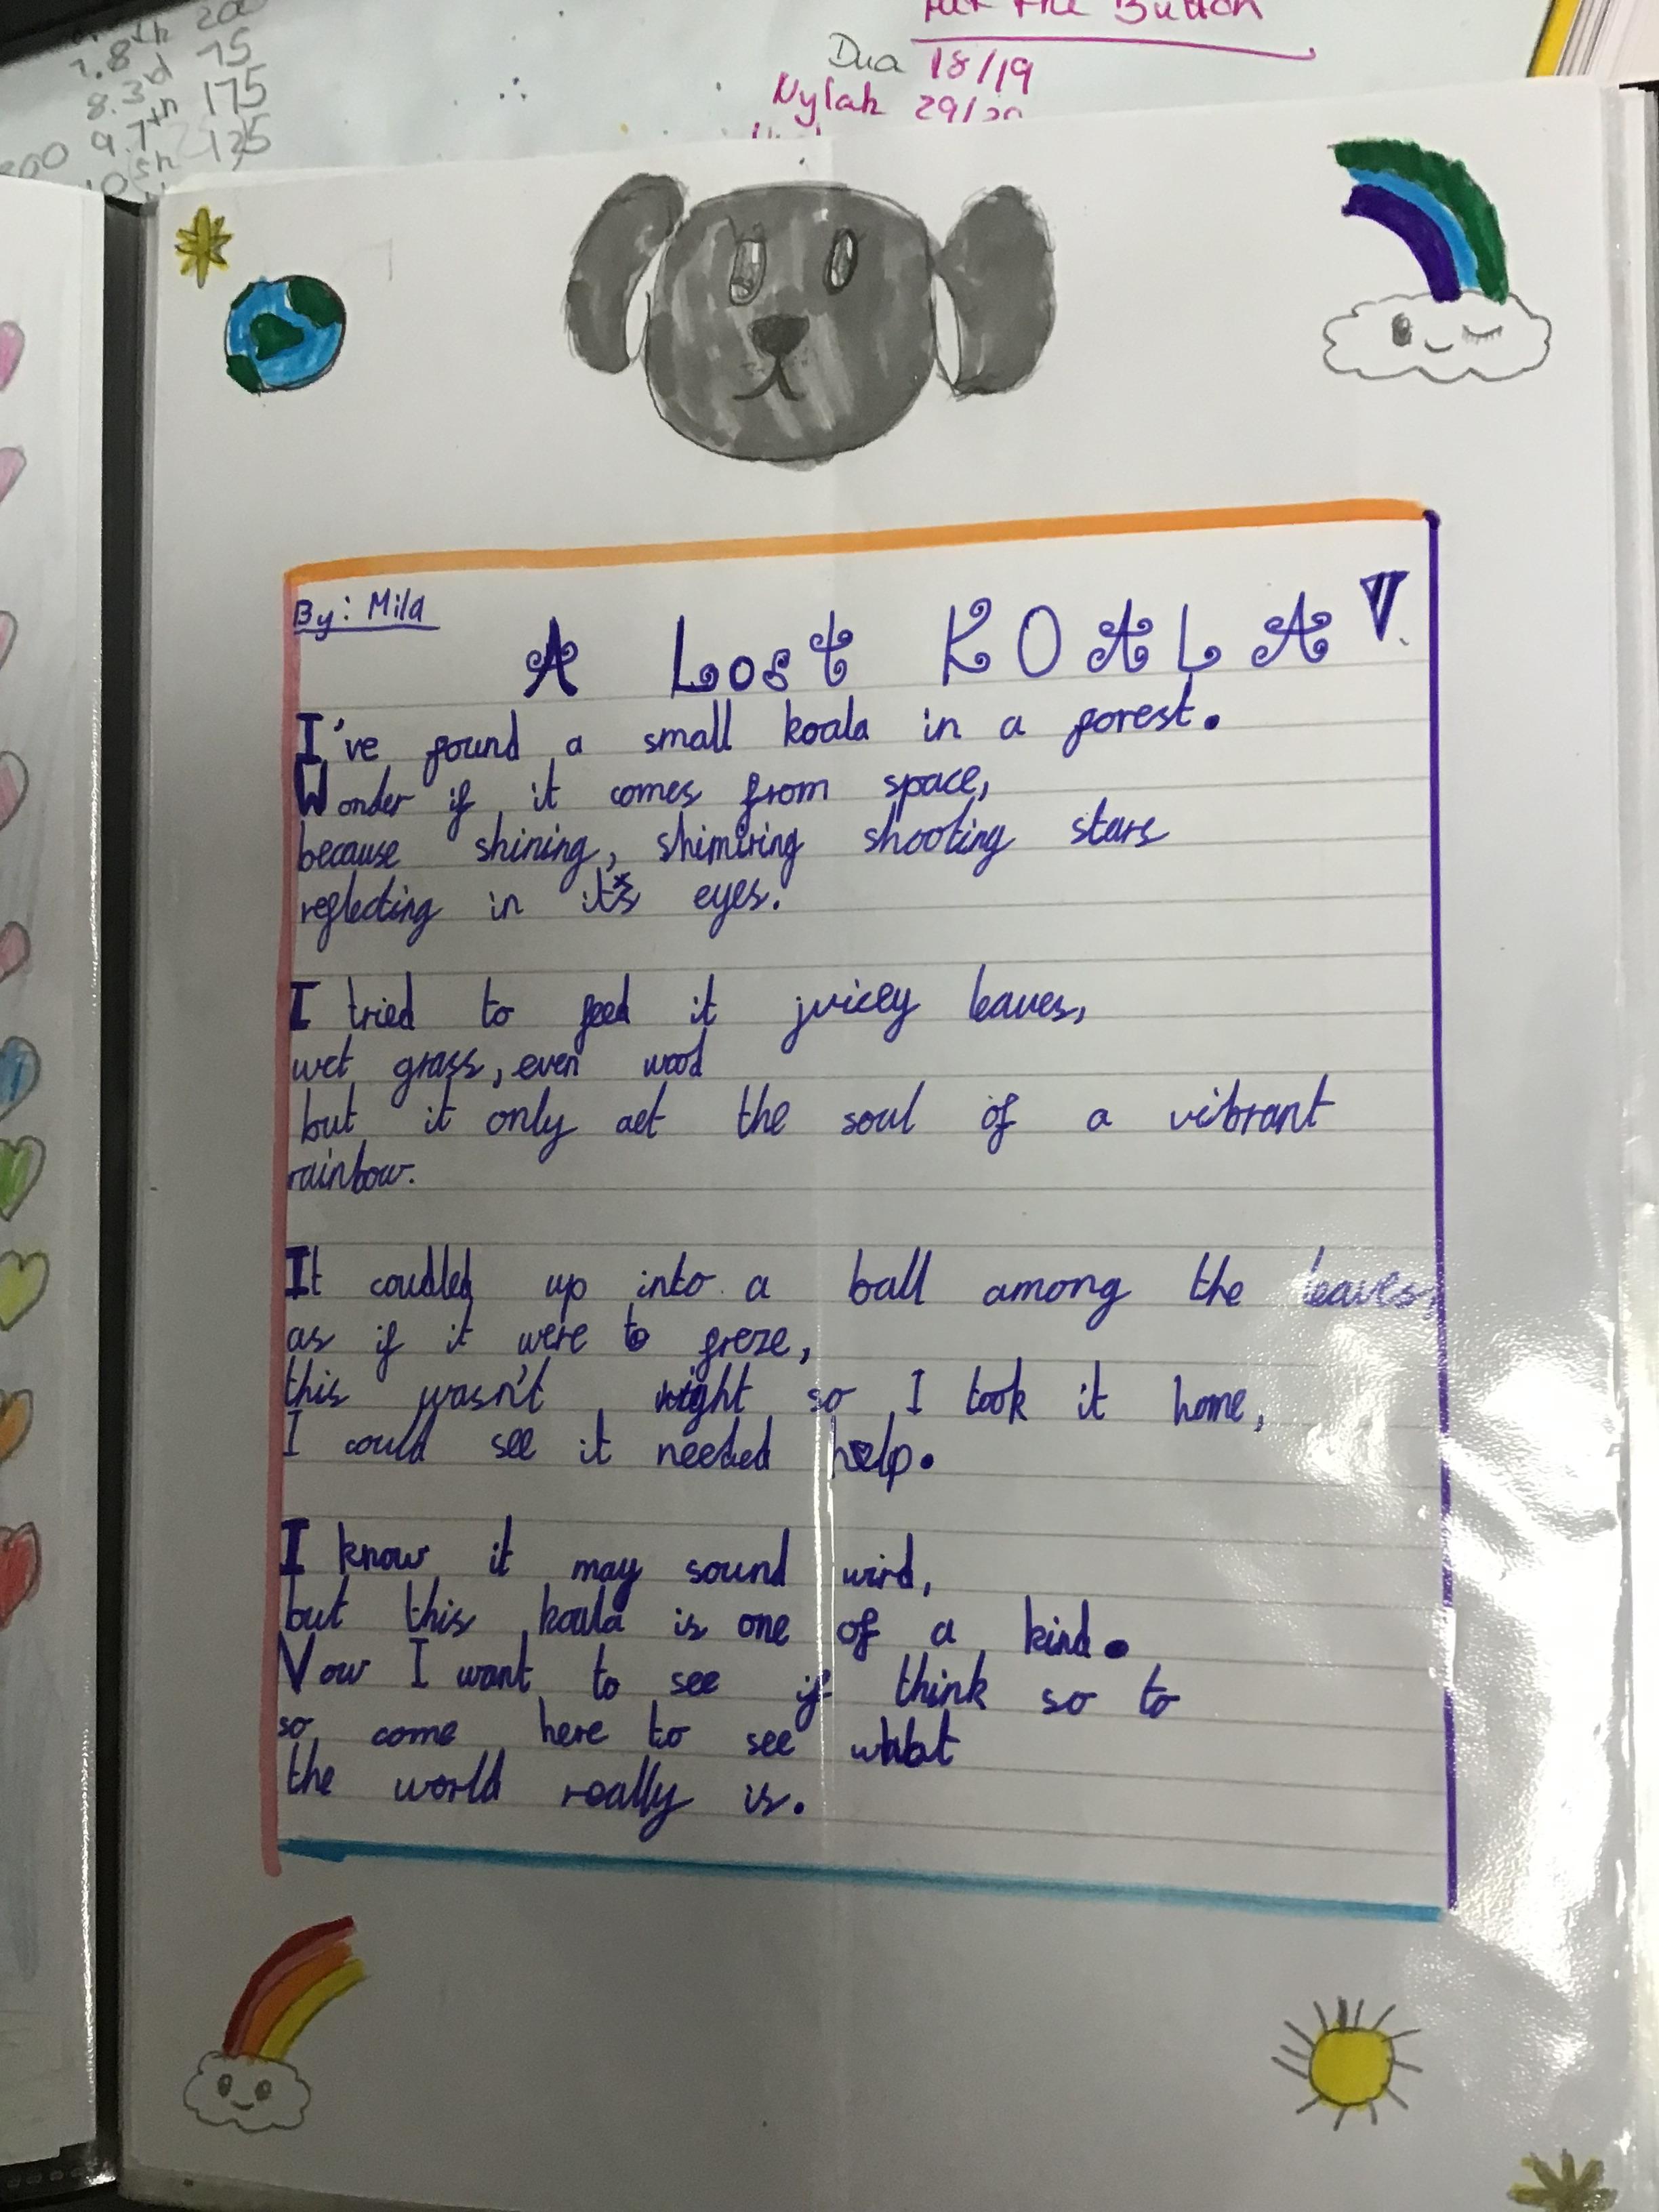 Hit the Button
Dua 18/19
Nylah 29/30
7.8th 200
8.3rd 75
9.7th 175
300 10 5th 125
By: Mila
A Lost KOALA
I've found a small koala in a forest.
Wonder if it comes from space,
because shining, shimiring shooting stars
reflecting in it's eyes.
I tried to feed it juicey leaves,
wet grass, even wood
but it only aet the soul of a vibrant
rainbow.
It coudled up into a ball among the leaves,
as if it were to freze,
this wasn't right so I took it home,
I could see it needed help.
I know it may sound wird,
but this koala is one of a kind.
Now I want to see if think so to
so come here to see what
the world really is.